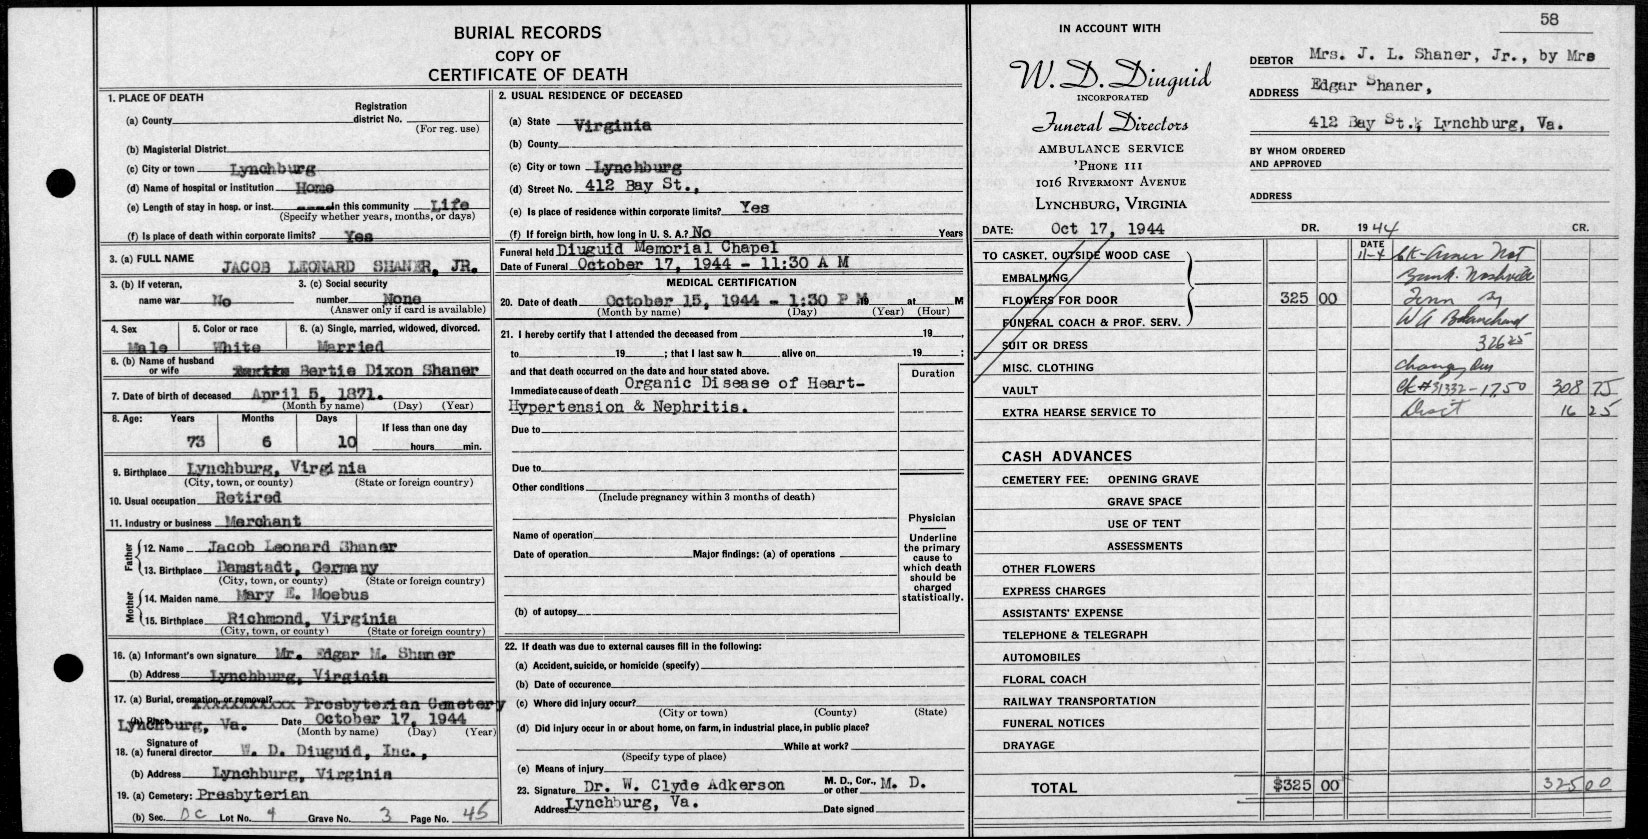 BURIAL RECORDS
COPY OF
CERTIFICATE OF DEATH
1. PLACE OF DEATH
(a) County
Registration district No.
(For reg. use)
(b) Magisterial District
(c) City or town Lynchburg
(d) Name of hospital or institution Home
(e) Length of stay in hosp. or inst. ---- in this community Life
(Specify whether years, months, or days)
(f) Is place of death within corporate limits? Yes
3. (a) FULL NAME JACOB LEONARD SHANER, JR.
3. (b) If veteran, name war No
3. (c) Social security number None
(Answer only if card is available)
4. Sex Male
5. Color or race White
6. (a) Single, married, widowed, divorced. Married
6. (b) Name of husband or wife Bertie Dixon Shaner
7. Date of birth of deceased April 5, 1871.
(Month by name) (Day) (Year)
8. Age: Years 73 Months 6 Days 10
If less than one day
hours min.
9. Birthplace Lynchburg, Virginia
(City, town, or county) (State or foreign country)
10. Usual occupation Retired
11. Industry or business Merchant
Father
12. Name Jacob Leonard Shaner
13. Birthplace Damstadt, Germany
(City, town, or county) (State or foreign country)
Mother
14. Maiden name Mary E. Moebus
15. Birthplace Richmond, Virginia
(City, town, or county) (State or foreign country)
16. (a) Informant's own signature Mr. Edgar M. Shaner
(b) Address Lynchburg, Virginia
17. (a) Burial, cremation, or removal? xxxxxxxxxxx Presbyterian Cemetery
(b) Place Lynchburg, Va. Date October 17, 1944
(Month by name) (Day) (Year)
18. (a) Signature of funeral director W. D. Diuguid, Inc.,
(b) Address Lynchburg, Virginia
19. (a) Cemetery: Presbyterian
(b) Sec. DC Lot No. 4 Grave No. 3 Page No. 45
2. USUAL RESIDENCE OF DECEASED
(a) State Virginia
(b) County
(c) City or town Lynchburg
(d) Street No. 412 Bay St.,
(e) Is place of residence within corporate limits? Yes
(f) If foreign birth, how long in U. S. A.? No Years
Funeral held Diuguid Memorial Chapel
Date of Funeral October 17, 1944 - 11:30 A M
MEDICAL CERTIFICATION
20. Date of death October 15, 1944 - 1:30 P M 19 at M
(Month by name) (Day) (Year) (Hour)
21. I hereby certify that I attended the deceased from 19 ,
to 19 ; that I last saw h alive on 19 ;
and that death occurred on the date and hour stated above.
Duration
Immediate cause of death Organic Disease of Heart-
Hypertension & Nephritis.
Due to
Due to
Other conditions
(Include pregnancy within 3 months of death)
Name of operation
Date of operation Major findings: (a) of operations
(b) of autopsy
Physician
Underline the primary cause to which death should be charged statistically.
22. If death was due to external causes fill in the following:
(a) Accident, suicide, or homicide (specify)
(b) Date of occurence
(c) Where did injury occur?
(City or town) (County) (State)
(d) Did injury occur in or about home, on farm, in industrial place, in public place?
While at work?
(Specify type of place)
(e) Means of injury
23. Signature Dr. W. Clyde Adkerson M. D., Cor., or other M. D.
Address Lynchburg, Va. Date signed
58
IN ACCOUNT WITH
W. D. Diuguid
INCORPORATED
Funeral Directors
AMBULANCE SERVICE
'PHONE 111
1016 RIVERMONT AVENUE
LYNCHBURG, VIRGINIA
DEBTOR Mrs. J. L. Shaner, Jr., by Mrs
ADDRESS Edgar Shaner,
412 Bay St., Lynchburg, Va.
BY WHOM ORDERED
AND APPROVED
ADDRESS
DATE: Oct 17, 1944 DR. 1944 CR.
TO CASKET, OUTSIDE WOOD CASE
EMBALMING
FLOWERS FOR DOOR 325 00
FUNERAL COACH & PROF. SERV.
SUIT OR DRESS
MISC. CLOTHING
VAULT
EXTRA HEARSE SERVICE TO
DATE
11-4 Ck-Amer Nat
Bank. Nashville
Tenn by
W A Blanchard
326 25
Change
Ck#31332-17.50 308 75
Disct 16 25
CASH ADVANCES
CEMETERY FEE: OPENING GRAVE
GRAVE SPACE
USE OF TENT
ASSESSMENTS
OTHER FLOWERS
EXPRESS CHARGES
ASSISTANTS' EXPENSE
TELEPHONE & TELEGRAPH
AUTOMOBILES
FLORAL COACH
RAILWAY TRANSPORTATION
FUNERAL NOTICES
DRAYAGE
TOTAL $325 00 325 00